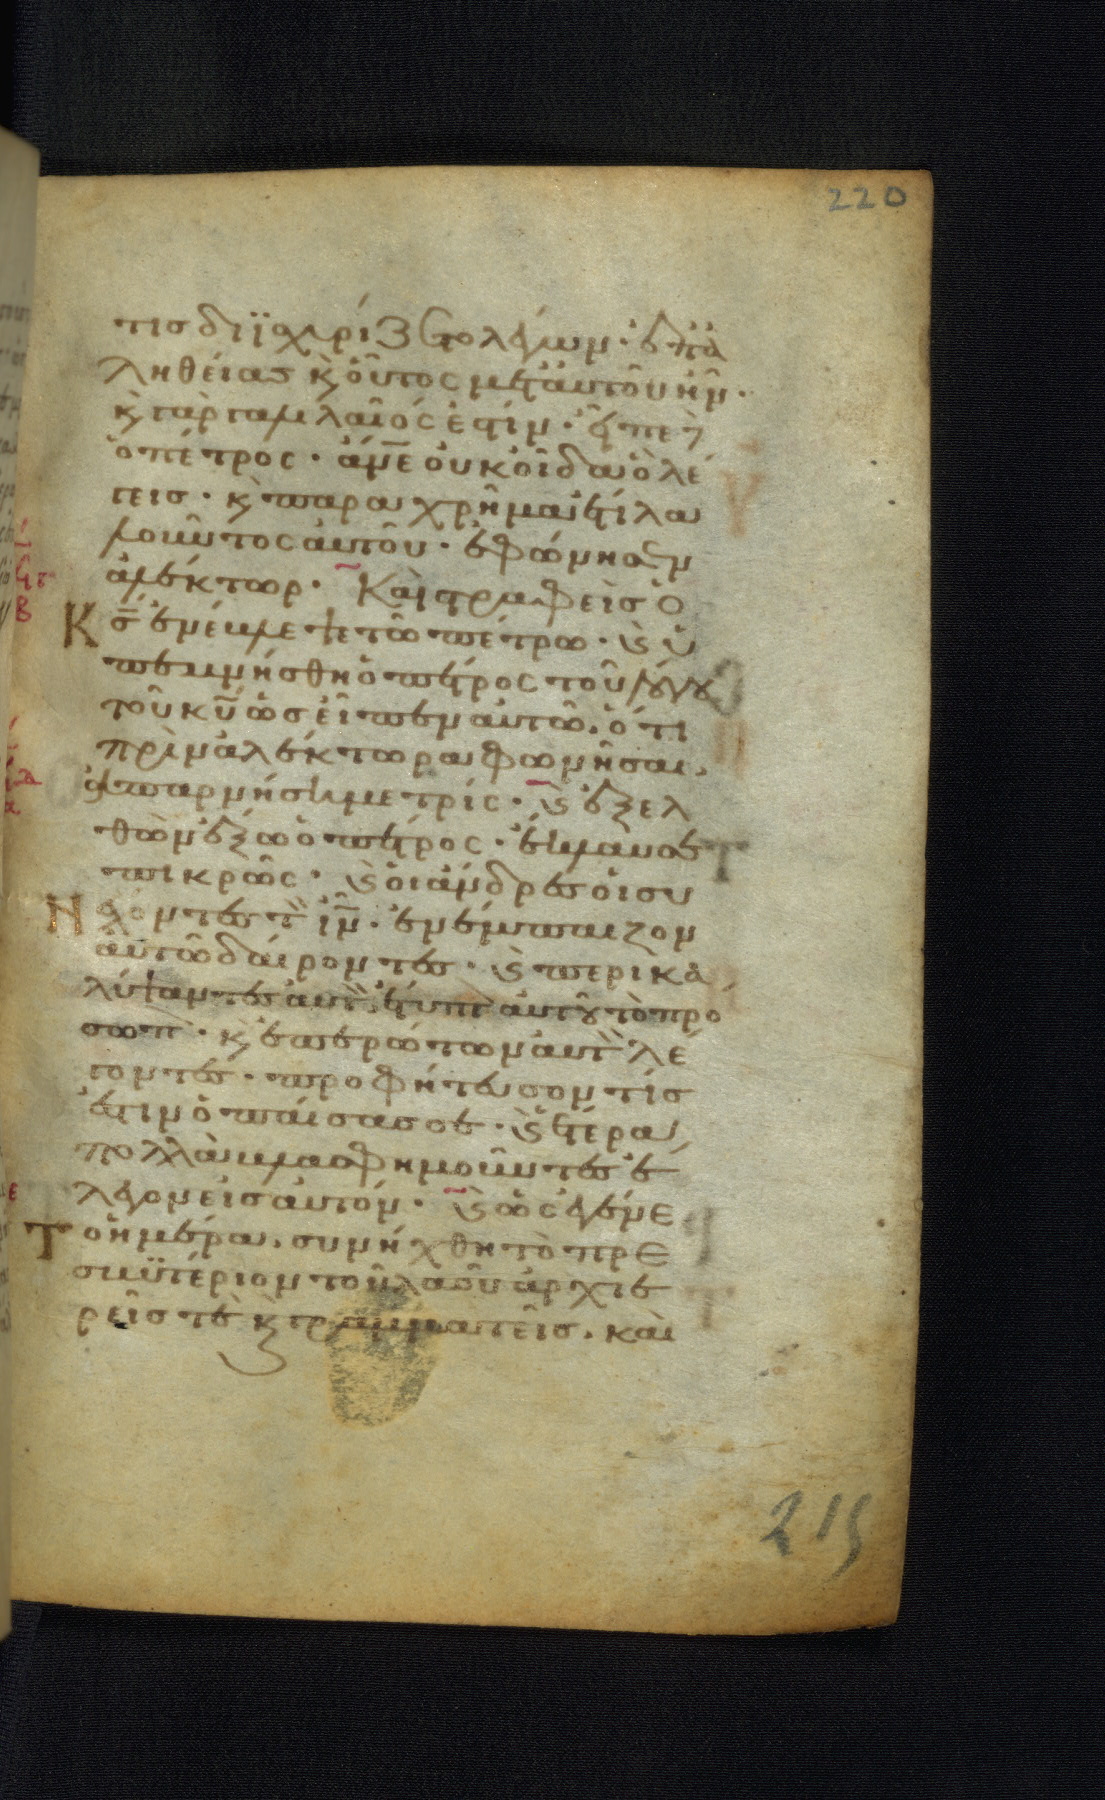 220
τις διϊσχυρίζετο λέγων· ἐπ ἀ
ληθείας κ οὗτος μετ αὐτοῦ ἦν·
κ γὰρ γαλιλαῖός ἐστιν· εἶπε δὲ
ὁ πέτρος· ἄνε οὐκ οἶδα ὃ λέ
γεις· κ παραχρῆμα ἔτι λα
λοῦντος αὐτοῦ· ἐφώνησεν
ἀλέκτωρ· Καὶ στραφεὶς ὁ
κς ἐνέβλεψε τῶ πέτρω· κ ὑ
πεμνήσθη ὁ πέτρος τοῦ λόγου
τοῦ κυ ὡς εἶπεν αὐτῶ, ὅτι
πρὶν ἀλέκτορα φωνῆσαι,
ἀπαρνήση με τρίς· κ ἐξελ
θὼν ἔξω ὁ πέτρος· ἔκλαυσε
πικρῶς· κ οἱ ἄνδρες οἱ συ
νέχοντες τὸν ιν· ἐνέπαιζον
αὐτῶ δαίροντες· κ περικα
λύψαντες αὐτὸν ἔτυπτον αὐτοῦ τὸ πρό
σωπον· κ ἐπερώτων αὐτὸν λέ
γοντες· προφήτευσον τίς
ἐστιν ὁ παίσας σε· κ ἕτερα
πολλὰ βλασφημοῦντες ἔ
λεγον εἰς αὐτόν· κ ὡς ἐγένε
το ἡμέρα, συνήχθη τὸ πρε
σβυτέριον τοῦ λαοῦ ἀρχιε
ρεῖς τε κ γραμματεῖς, καὶ
219